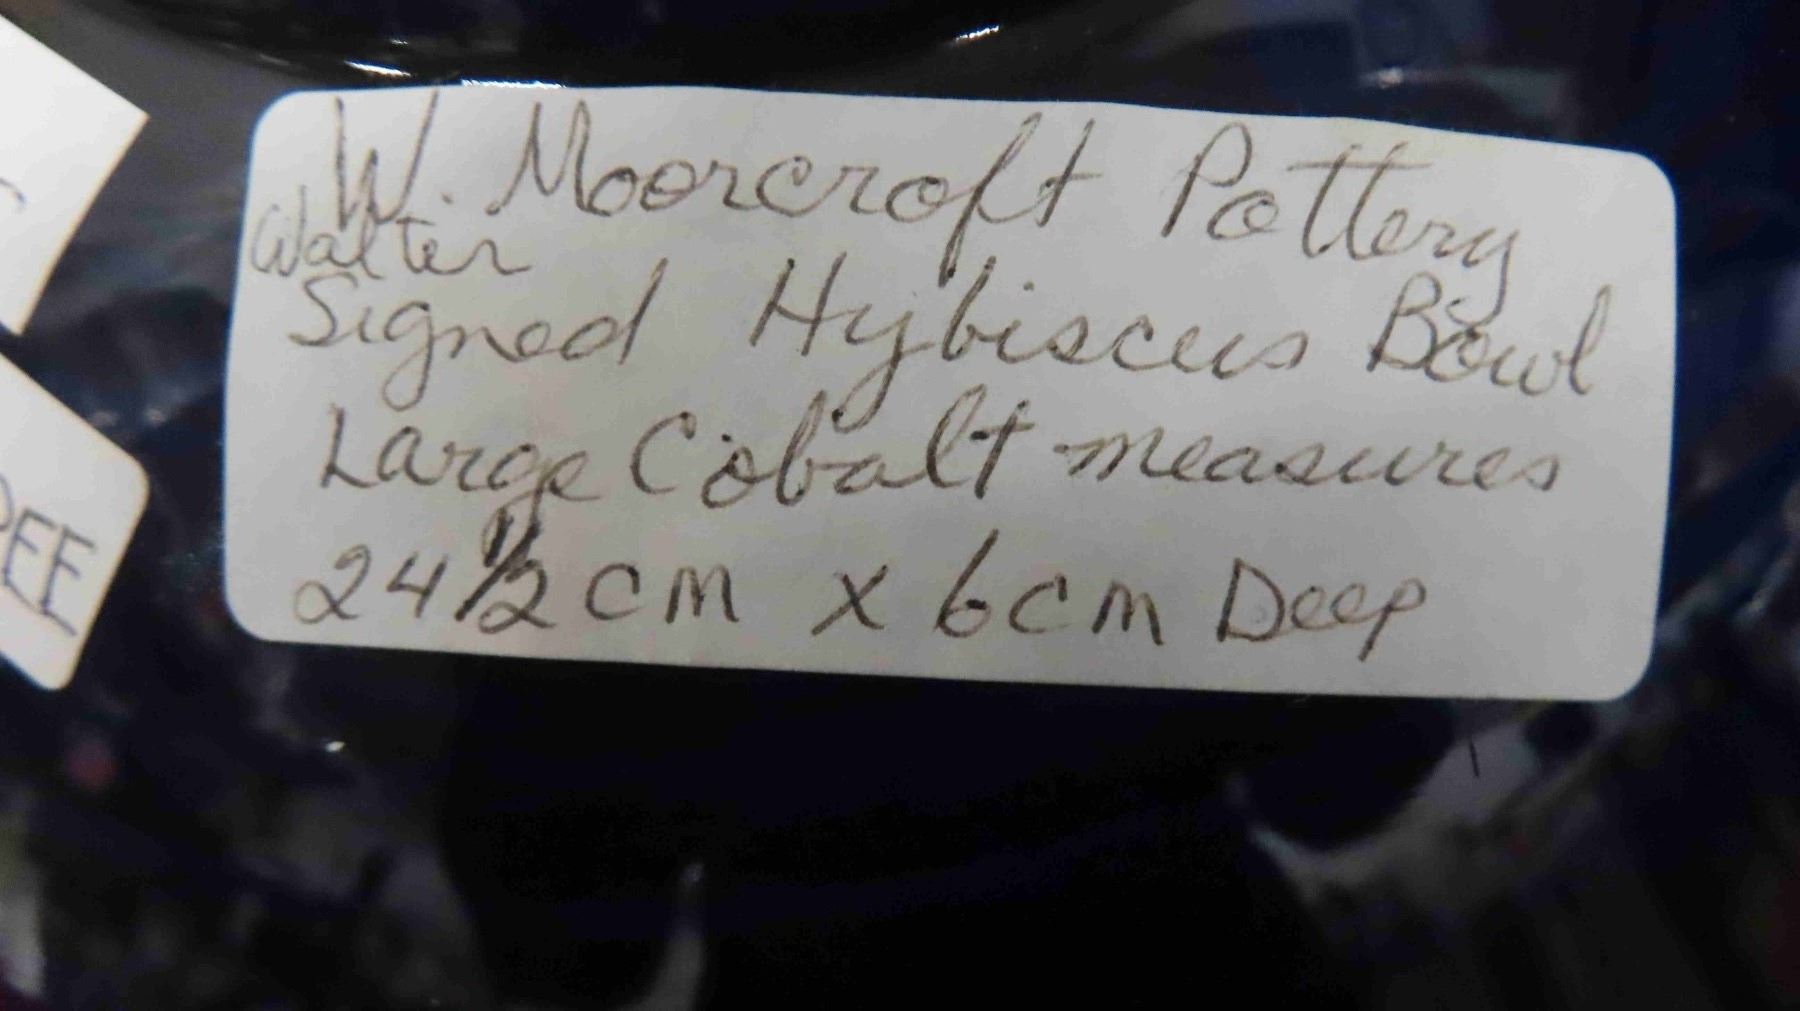 W. Moorcroft Pottery
Walter
Signed Hybiscus Bowl
Large Cobalt measures
24 1/2 cm x 6cm Deep